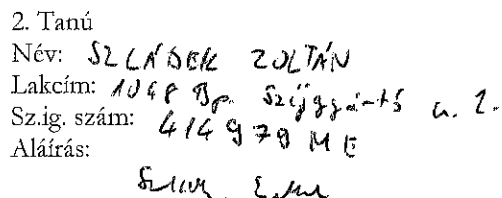 2. Tanú
Név: SZLÁDEK ZOLTÁN
Lakcím: 1048 Bp. Szíjgyártó u. 2.
Sz.ig. szám: 414979 ME
Aláírás: